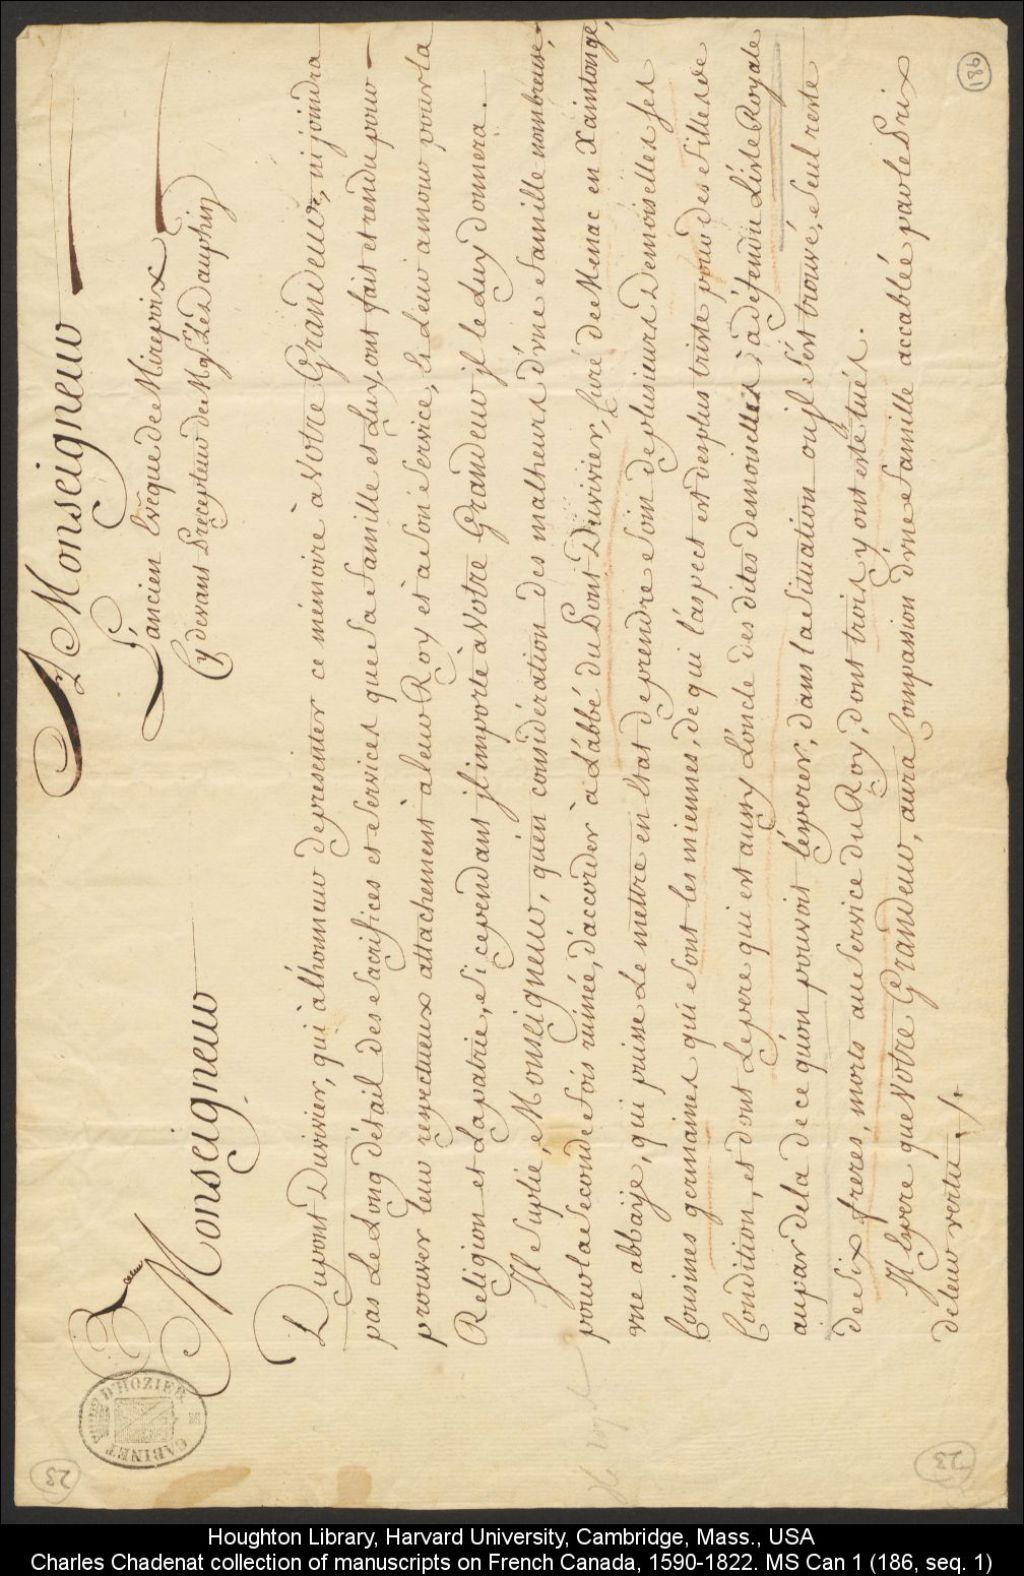 A Monseigneur
L'ancien Evêque de Mirepoix
Cy devant Precepteur de Mgr. Le Dauphin
Monseigneur
Dupont Duvivier, qui à l'honneur de presenter ce mémoire à Votre Grandeur, n'y joindra
pas Le Long détail des sacrifices et services que sa famille et Luy, ont fait et rendu pour
prouver leur respectueux attachement à leur Roy et à son service, Et Leur amour pour la
Religion et La patrie, Si cependant jl importe à Votre Grandeur jl le Luy donnera.
Jl Suplie, Monseigneur, qu'en considération des malheurs d'vne famille nombreuse,
pour la seconde fois ruinée, d'accorder à L'abbé du Pont Duvivier, Curé de Menac en Xaintonge,
vne abbaye, qui puisse Le mettre en Etat de prendre Soin de plusieurs Demoiselles ses
Cousines germaines qui sont les miennes, de qui l'aspect est des plus triste pour des filles de
Condition, et dont Le pere qui est aussy L'oncle des dites demoiselles, à défendu L'isle Royale
aupar dela de ce qu'on pouvoit l'esperer, dans la Situation ou jl s'est trouvé, Seul reste
de Six freres, morts au service du Roy, dont trois y ont esté tués.
Jl Espere que Votre Grandeur, aura Compassion d'vne famille accablée par le Prix
de leur vertu.
CABINET D'HOZIER
23
186
23
Houghton Library, Harvard University, Cambridge, Mass., USA
Charles Chadenat collection of manuscripts on French Canada, 1590-1822. MS Can 1 (186, seq. 1)